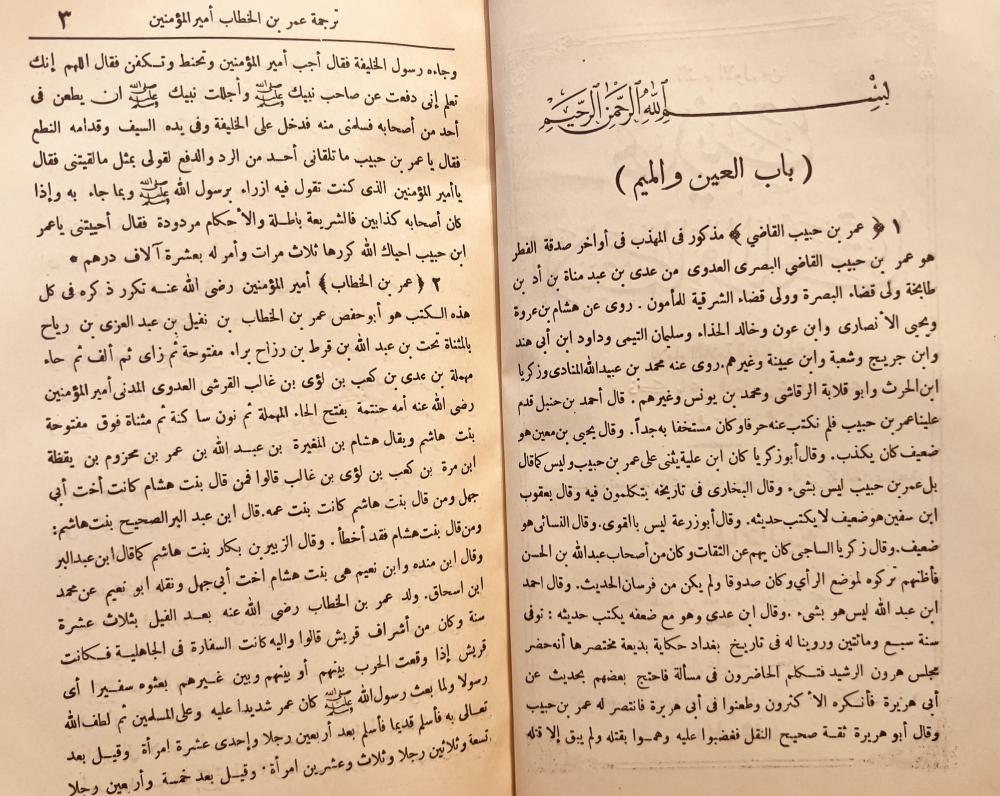 بسم الله الرحمن الرحيم
( باب العين والميم )
١ ﴿ عمر بن حبيب القاضي ﴾ مذكور فى المهذب فى أواخر صدقة الفطر
هو عمر بن حبيب القاضي البصرى العدوى من عدى بن عبد مناة بن أد بن
طابخة ولى قضاء البصرة وولى قضاء الشرقية للمأمون . روى عن هشام بن عروة
ويحيى الأنصارى وابن عون وخالد الحذاء وسليمان التيمى وداود ابن أبى هند
وابن جريج وشعبة وابن عيينة وغيرهم.روى عنه محمد بن عبيد الله المنادى وزكريا
ابن الحرث وابو قلابة الرقاشى ومحمد بن يونس وغيرهم : قال أحمد بن حنبل قدم
علينا عمر بن حبيب فلم نكتب عنه حرفا وكان مستخفا به جداً . وقال يحيى بن معين هو
ضعيف كان يكذب . وقال أبو زكريا كان ابن علية يثنى على عمر بن حبيب وليس كما قال
بل عمر بن حبيب ليس بشىء وقال البخارى فى تاريخه يتكلمون فيه وقال يعقوب
ابن سفين هو ضعيف لا يكتب حديثه . وقال أبو زرعة ليس بالقوى. وقال النسائى هو
ضعيف.وقال زكريا الساجى كان يهم عن الثقات وكان من أصحاب عبد الله بن الحسن
فأظنهم تركوه لموضع الرأى وكان صدوقا ولم يكن من فرسان الحديث. وقال احمد
ابن عبد الله ليس هو بشىء .وقال ابن عدى وهو مع ضعفه يكتب حديثه : توفى
سنة سبع ومائتين وروينا له فى تاريخ بغداد حكاية بديعة مختصرها أنه حضر
مجلس هرون الرشيد فتكلم الحاضرون فى مسألة فاحتج بعضهم بحديث عن
أبى هريرة فأنكره الأكثرون وطعنوا فى أبى هريرة فانتصر له عمر بن حبيب
وقال أبو هريرة ثقة صحيح النقل فغضبوا عليه وهموا بقتله ولم يبق إلا قتله
ترجمة عمر بن الخطاب أمير المؤمنين ٣
وجاءه رسول الخليفة فقال أجب أمير المؤمنين وتحنط وتكفن فقال اللهم إنك
تعلم إنى دفعت عن صاحب نبيك ﷺ وأجللت نبيك ﷺ ان يطعن فى
أحد من أصحابه فسلمنى منه فدخل على الخليفة وفى يده السيف وقدامه النطع
فقال يا عمر بن حبيب ما تلقانى أحد من الرد والدفع لقولى بمثل ما لقيتنى فقال
ياأمير المؤمنين الذى كنت تقول فيه ازراء برسول الله ﷺ وبما جاء به وإذا
كان أصحابه كذابين فالشريعة باطلة والأحكام مردودة فقال أحييتنى ياعمر
ابن حبيب احياك الله كررها ثلاث مرات وأمر له بعشرة آلاف درهم *
٢ ﴿ عمر بن الخطاب ﴾ أمير المؤمنين رضى الله عنه تكرر ذكره فى كل
هذه الكتب هو أبو حفص عمر بن الخطاب بن نفيل بن عبد العزى بن رياح
بالمثناة تحت بن عبد الله بن قرط بن رزاح براء مفتوحة ثم زاى ثم ألف ثم حاء
مهملة بن عدى بن كعب بن لؤى بن غالب القرشى العدوى المدنى أمير المؤمنين
رضى الله عنه أمه حنتمة بفتح الحاء المهملة ثم نون ساكنة ثم مثناة فوق مفتوحة
بنت هاشم ويقال هشام بن المغيرة بن عبد الله بن عمر بن مخزوم بن يقظة
ابن مرة بن كعب بن لؤى بن غالب قالوا فمن قال بنت هشام كانت أخت أبي
جهل ومن قال بنت هاشم كانت بنت عمه. قال ابن عبد البر الصحيح بنت هاشم:
ومن قال بنت هشام فقد أخطأ . وقال الزبير بن بكار بنت هاشم كما قال ابن عبد البر
وقال ابن منده وابن نعيم هى بنت هشام اخت أبى جهل ونقله ابو نعيم عن محمد
ابن اسحاق. ولد عمر بن الخطاب رضي الله عنه بعد الفيل بثلاث عشرة
سنة وكان من أشراف قريش قالوا واليه كانت السفارة فى الجاهلية فكانت
قريش إذا وقعت الحرب بينهم أو بينهم وبين غيرهم بعثوه سفيرا أى
رسولا ولما بعث رسول الله ﷺ كان عمر شديدا عليه وعلى المسلمين ثم لطف الله
تعالى به فأسلم قديما فأسلم بعد أربعين رجلا وإحدى عشرة امرأة وقيل بعد
تسعة وثلاثين رجلا وثلاث وعشرين امرأة . وقيل بعد خمسة وأربعين رجلا